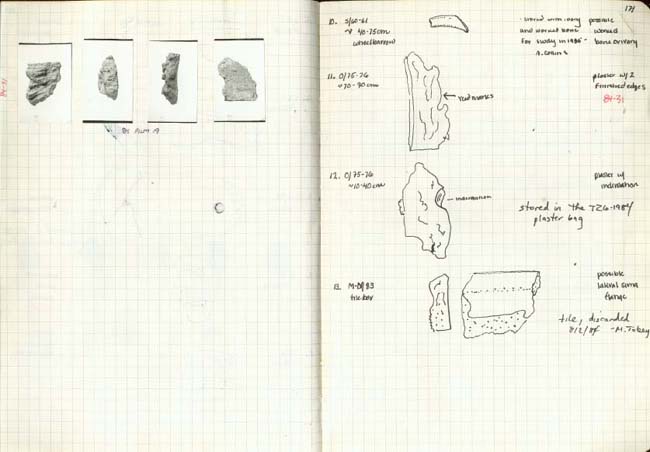 BS FILM 19
10. 5/60-61
~ 40-75cm
wheelbarrow
stored with ivory
and worked bone
for study in 1985 -
possible
worked
bone or ivory
11. O/75-76
~70-90cm
reed marks
plaster w/ 2
finished edges
84-31
12. O/75-76
~10-40cm
indentation
plaster w/
indentation
stored in the TZ6-1984
plaster bag
13.
possible
lateral sima
flange
tile, discarded
8/2/84 - M. Tobey